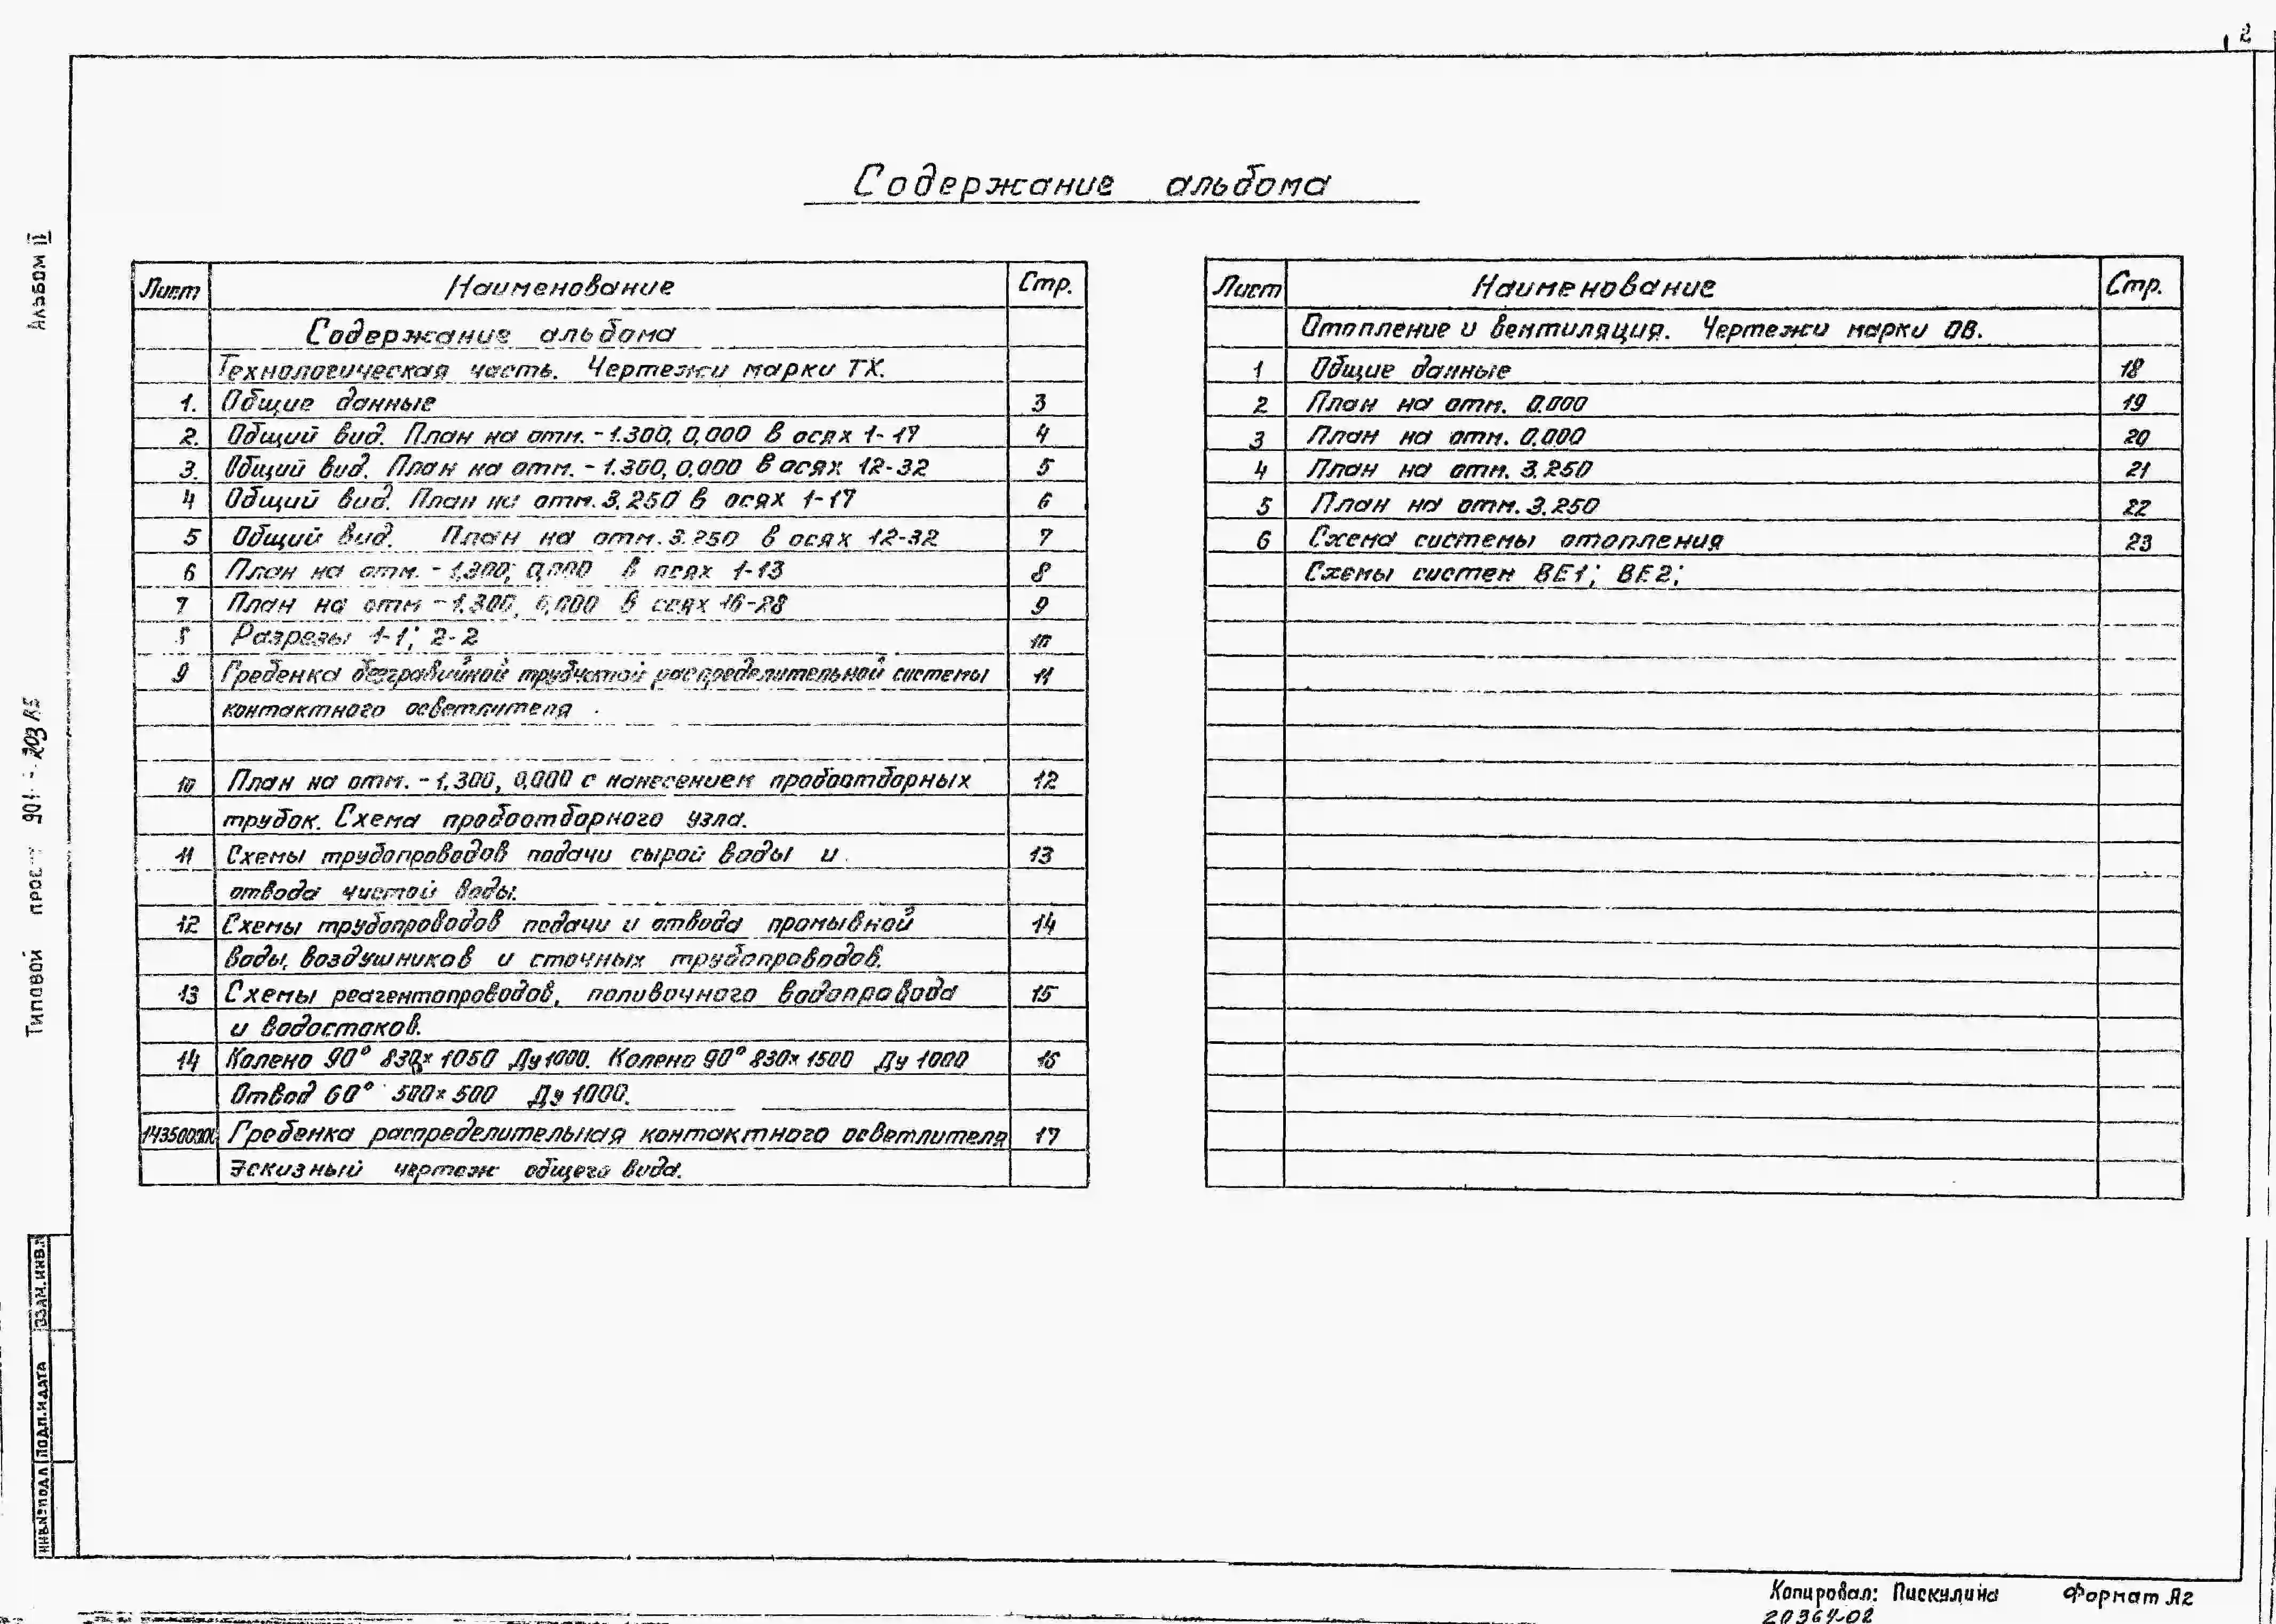 2
Содержание альбома
Альбом II
Лист Наименование Стр.
Содержание альбома
Технологическая часть. Чертежи марки ТХ.
1. Общие данные 3
2. Общий вид. План на отм. -1.300, 0,000 в осях 1-17 4
3. Общий вид. План на отм. -1.300, 0.000 в осях 12-32 5
4 Общий вид. План на отм. 3.250 в осях 1-17 6
5 Общий вид. План на отм. 3.250 в осях 12-32 7
6 План на отм. -1,300; 0,000 в осях 1-13 8
7 План на отм -1.300, 0,000 в осях 16-28 9
8 Разрезы 1-1; 2-2 10
9 Гребенка безгравийной трубчатой распределительной системы 11
контактного осветлителя
10 План на отм. -1,300, 0,000 с нанесением пробоотборных 12
трубок. Схема пробоотборного узла.
11 Схемы трубопроводов подачи сырой воды и 13
отвода чистой воды.
12 Схемы трубопроводов подачи и отвода промывной 14
воды, воздушников и сточных трубопроводов.
13 Схемы реагентопроводов, поливочного водопровода 15
и водостоков.
14 Колено 90° 830х1050 Ду1000. Колено 90° 830х1500 Ду 1000 16
Отвод 60° 500х500 Ду 1000.
Гребенка распределительная контактного осветлителя 17
Эскизный чертеж общего вида.
Лист Наименование Стр.
Отопление и вентиляция. Чертежи марки ОВ.
1 Общие данные 18
2 План на отм. 0.000 19
3 План на отм. 0.000 20
4 План на отм. 3.250 21
5 План на отм. 3.250 22
6 Схема системы отопления 23
Схемы систем ВЕ1; ВЕ2;
Типовой
ВЗАМ.ИНВ.№
ПОДП.И ДАТА
ИНВ.№ПОДЛ
Копировал: Пискулина Формат А2
20364-02